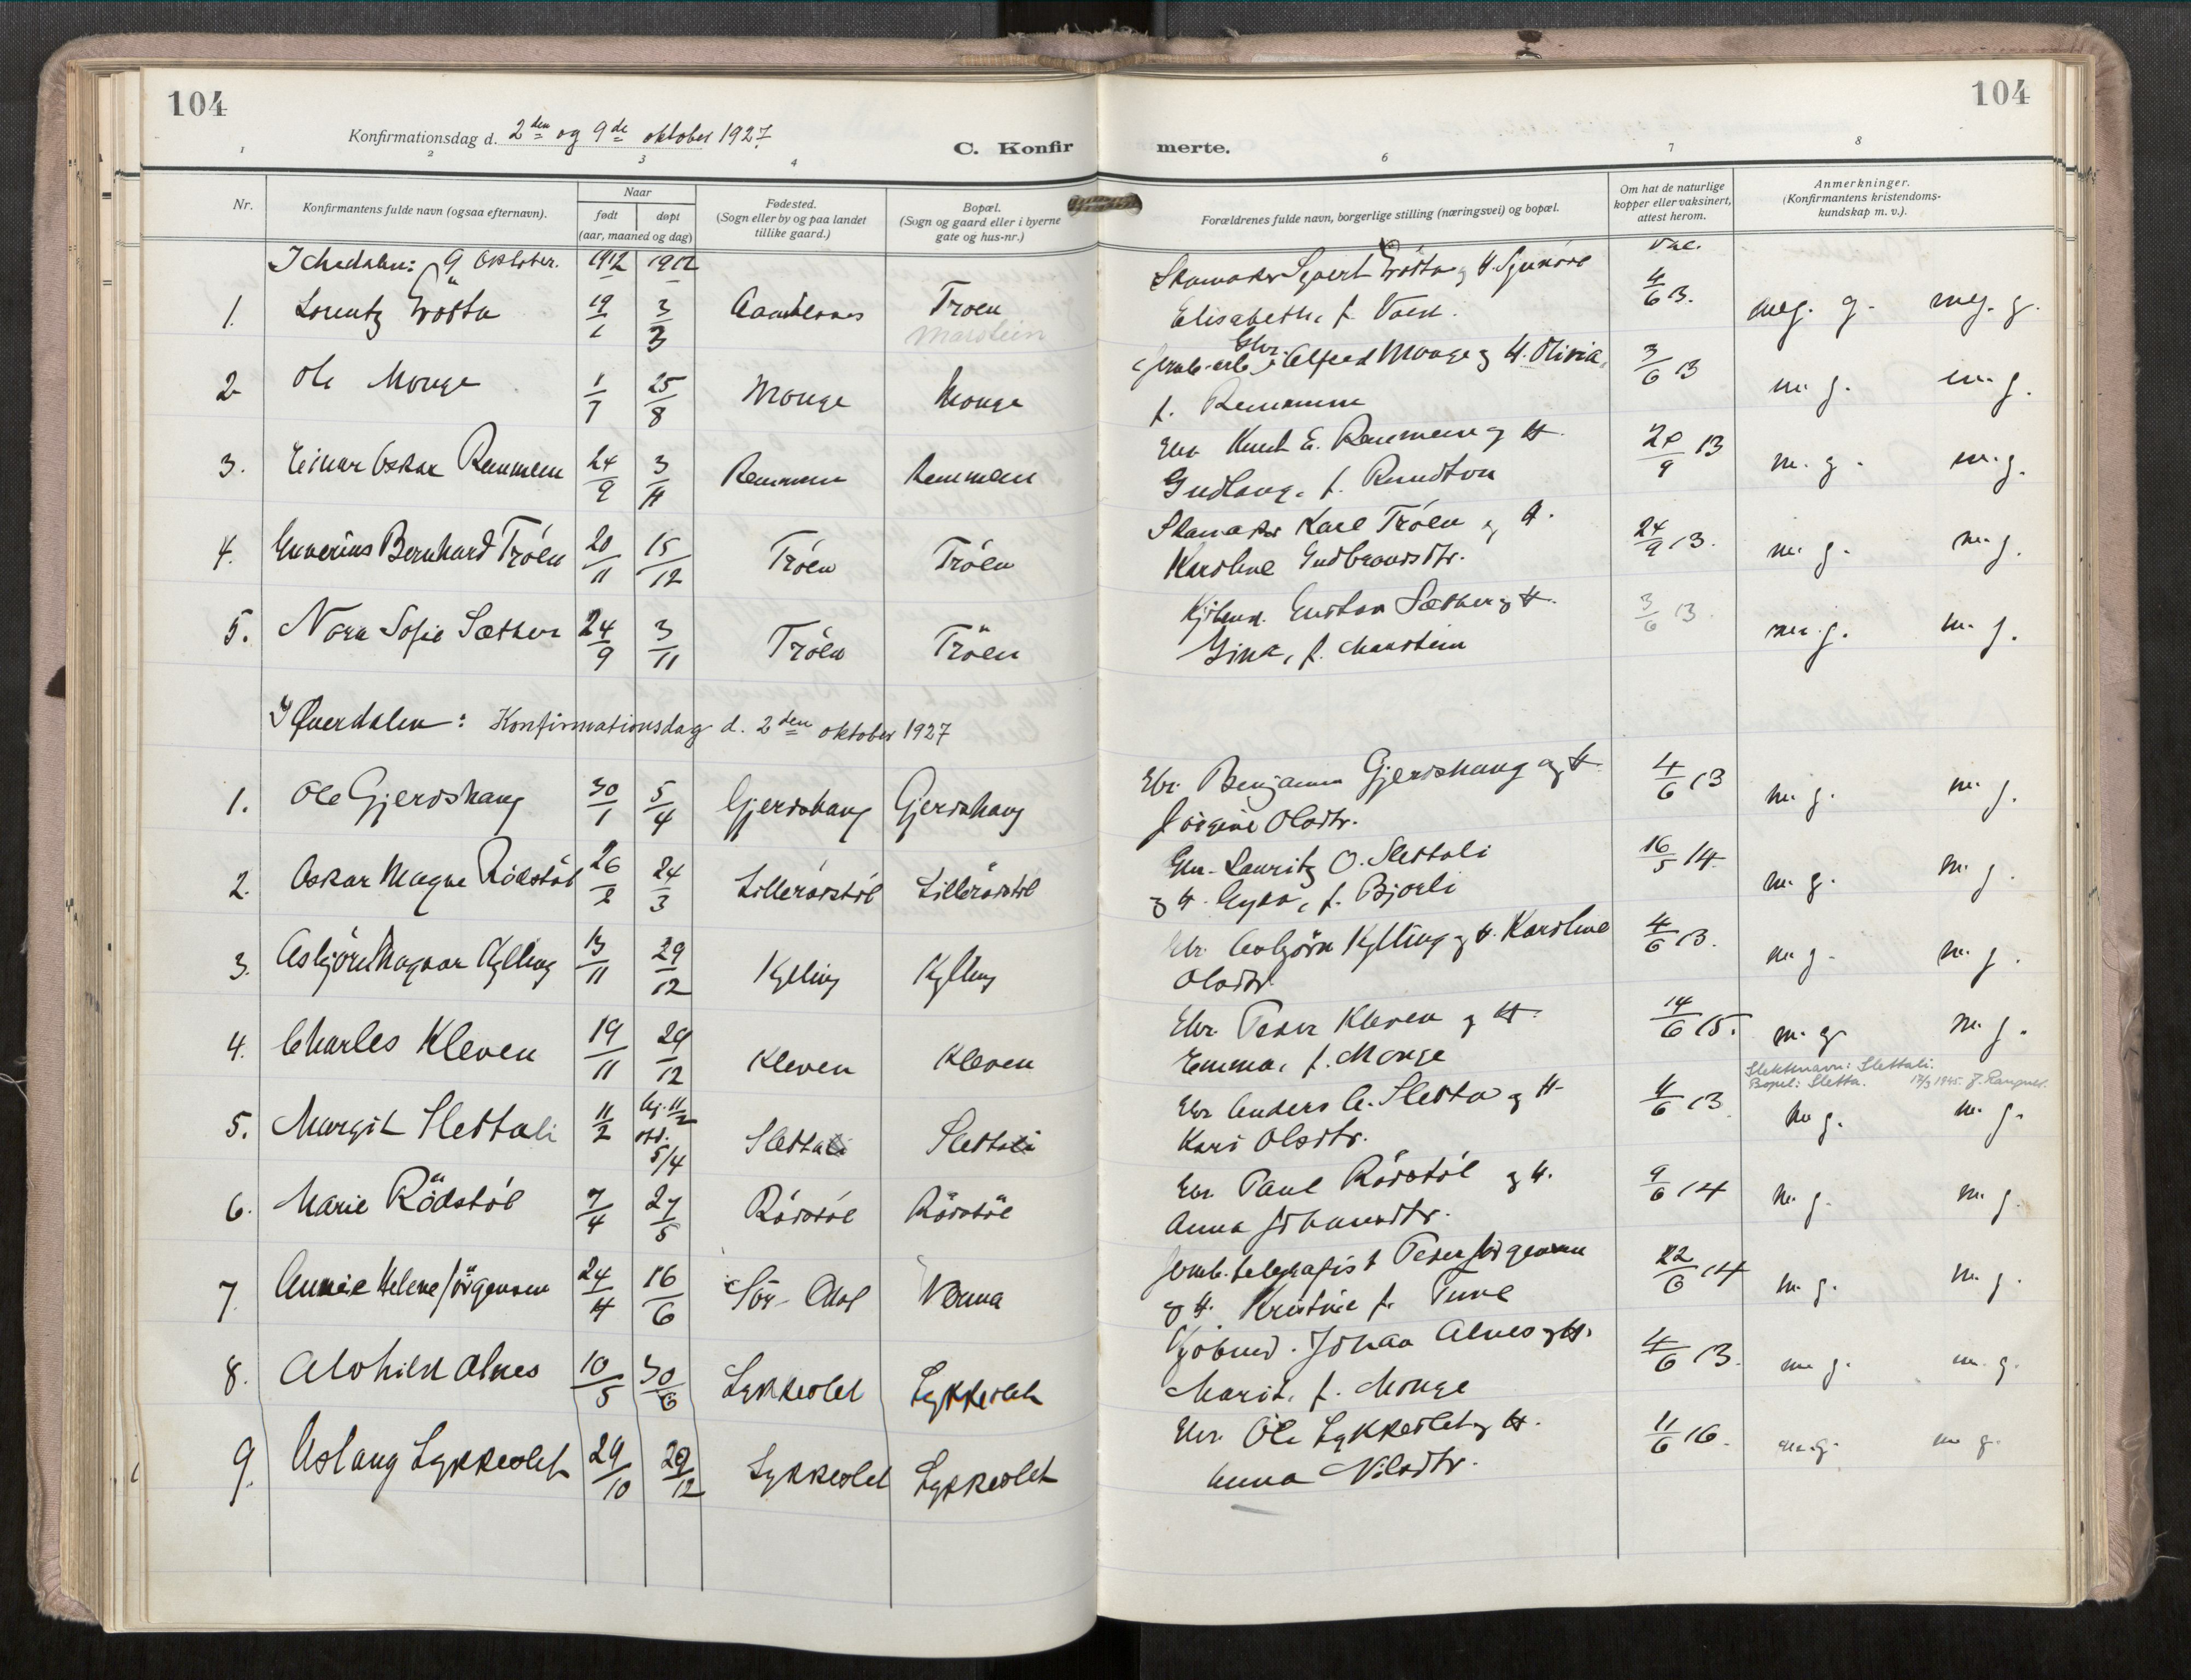 104
104
Konfirmationsdag d. 2den og 9de oktober 1927
C. Konfir
merte.
1
2
3
4
6
7
8
Nr.
Konfirmantens fulde navn (ogsaa efternavn).
Naar
født
døpt
(aar, maaned og dag)
Fødested.
(Sogn eller by og paa landet
tillike gaard.)
Bopæl.
(Sogn og gaard eller i byerne
gate og hus-nr.)
Forældrenes fulde navn, borgerlige stilling (næringsvei) og bopæl.
Om hat de naturlige
kopper eller vaksinert,
attest herom.
Anmerkninger.
(Konfirmantens kristendoms-
kundskap m. v.).
9 oktober. 1912 1912 vac.
1. 19/1 3/3 Troen 4/6 13. meg. g. meg. g.
Marstein
Elisabeth, f.
2 Ole Monge 1/7 25/8 Monge Monge Alfred Monge og H. Olivia, 3/6 13 m. g. m. g.
f. Remmem
3. Einar Oskar Remmem 24/9 3/11 Remmem Remmem Knut E. Remmem og H. 9 13 m. g. m. g.
Gudlaug, f.
4. Bernhard Tröen 20/11 15/12 Tröen Tröen Skomaker Karl Tröen og H. 24/9 13. m. g. m. g.
Karoline Gudbrandsdtr.
5. Nora Sofie Sæther 24/9 3/11 Tröen Tröen Gustav Sæther og H. 3/6 13. m. g. m. g.
Gina, f. Marstein
I Øverdalen: Konfirmationsdag d. 2den oktober 1927
1. Ole Gjerdshaug 30/1 5/4 Gjerdshaug Gjerdshaug Gbr. Benjamin Gjerdshaug og H. 4/6 13 m. g. m. g.
Jörgine Olsdtr.
2. Oskar Magne Rödstöl 26/2 24/3 Lillerödstöl Lillerödstöl Gbr. Lauritz O. Slettali 16/5 14. m. g. m. g.
og H. f. Bjorli
3. Asbjörn Ragnar Kylling 13/11 29/12 Kylling Kylling Gbr. Asbjörn Kylling og H. Karoline 4/6 13. m. g. m. g.
Olsdtr.
4. Charles Kleven 19/11 29/12 Kleven Kleven Gbr. Peder Kleven og H. 14/6 15. m. g. m. g.
Emma, f. Monge
Slektsnavn: Slettali.
Bopel: Sletta. 1945.
5. Margit Slettali 11/2 5/4 Slettali Slettali Gbr. Anders A. Sletta og H. 4/6 13 m. g. m. g.
Kari Olsdtr.
6. Marie Rödstöl 7/4 27/5 Rödstöl Rödstöl Gbr. Paul Rödstöl og H. 9/6 14 m. g. m. g.
Anna Johansdtr.
7. Annie Helene Jörgensen 24/4 16/6 Sör-Aal Verma Jernb. telegrafist Peder Jörgensen 22/6 14 m. g. m. g.
og H. Kristine f. Tune
8. Alvhild Alnes 10/5 30/6 Lykkeslet Lykkeslet Johan Alnes og H. 4/6 13. m. g. m. g.
Marit, f. Monge
9. Aslaug Lykkeslet 29/10 29/12 Lykkeslet Lykkeslet Gbr. Ole Lykkeslet og H. 11/6 16. m. g. m. g.
Anna Nilsdtr.